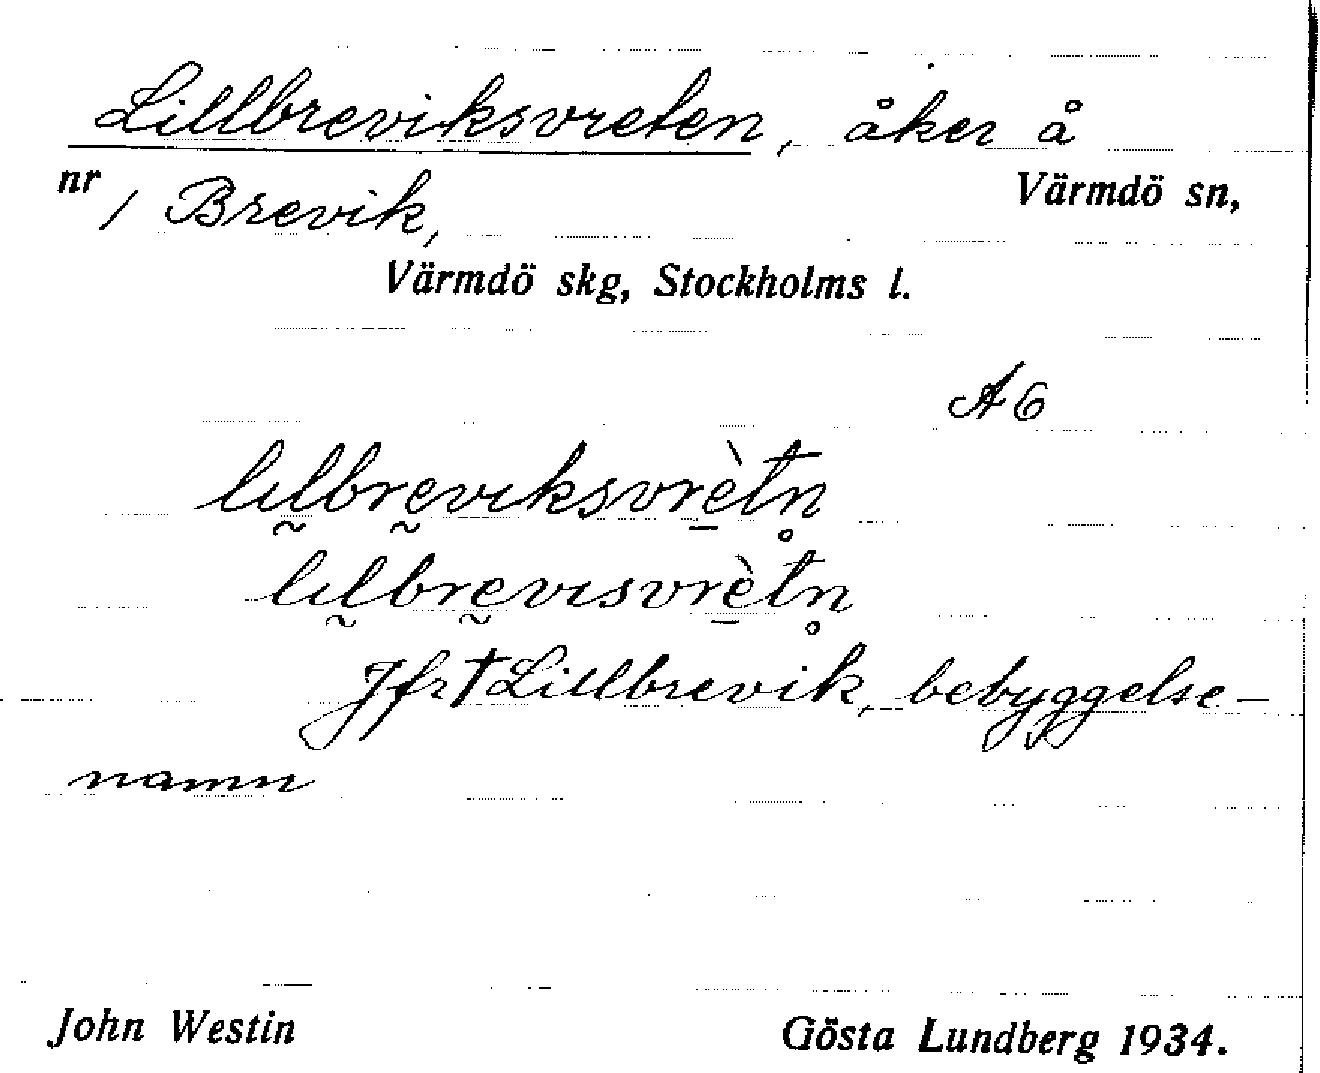 Lillbreviksvreten, åker å
nr 1 Brevik,
Värmdö sn,
Värmdö skg, Stockholms l.
A6
lɩl̰brḛvɩksvrè̱tn̥
lɩl̰brḛvɩsvrè̱tn̥
Jfr † Lillbrevik, bebyggelse-
namn
John Westin
Gösta Lundberg 1934.